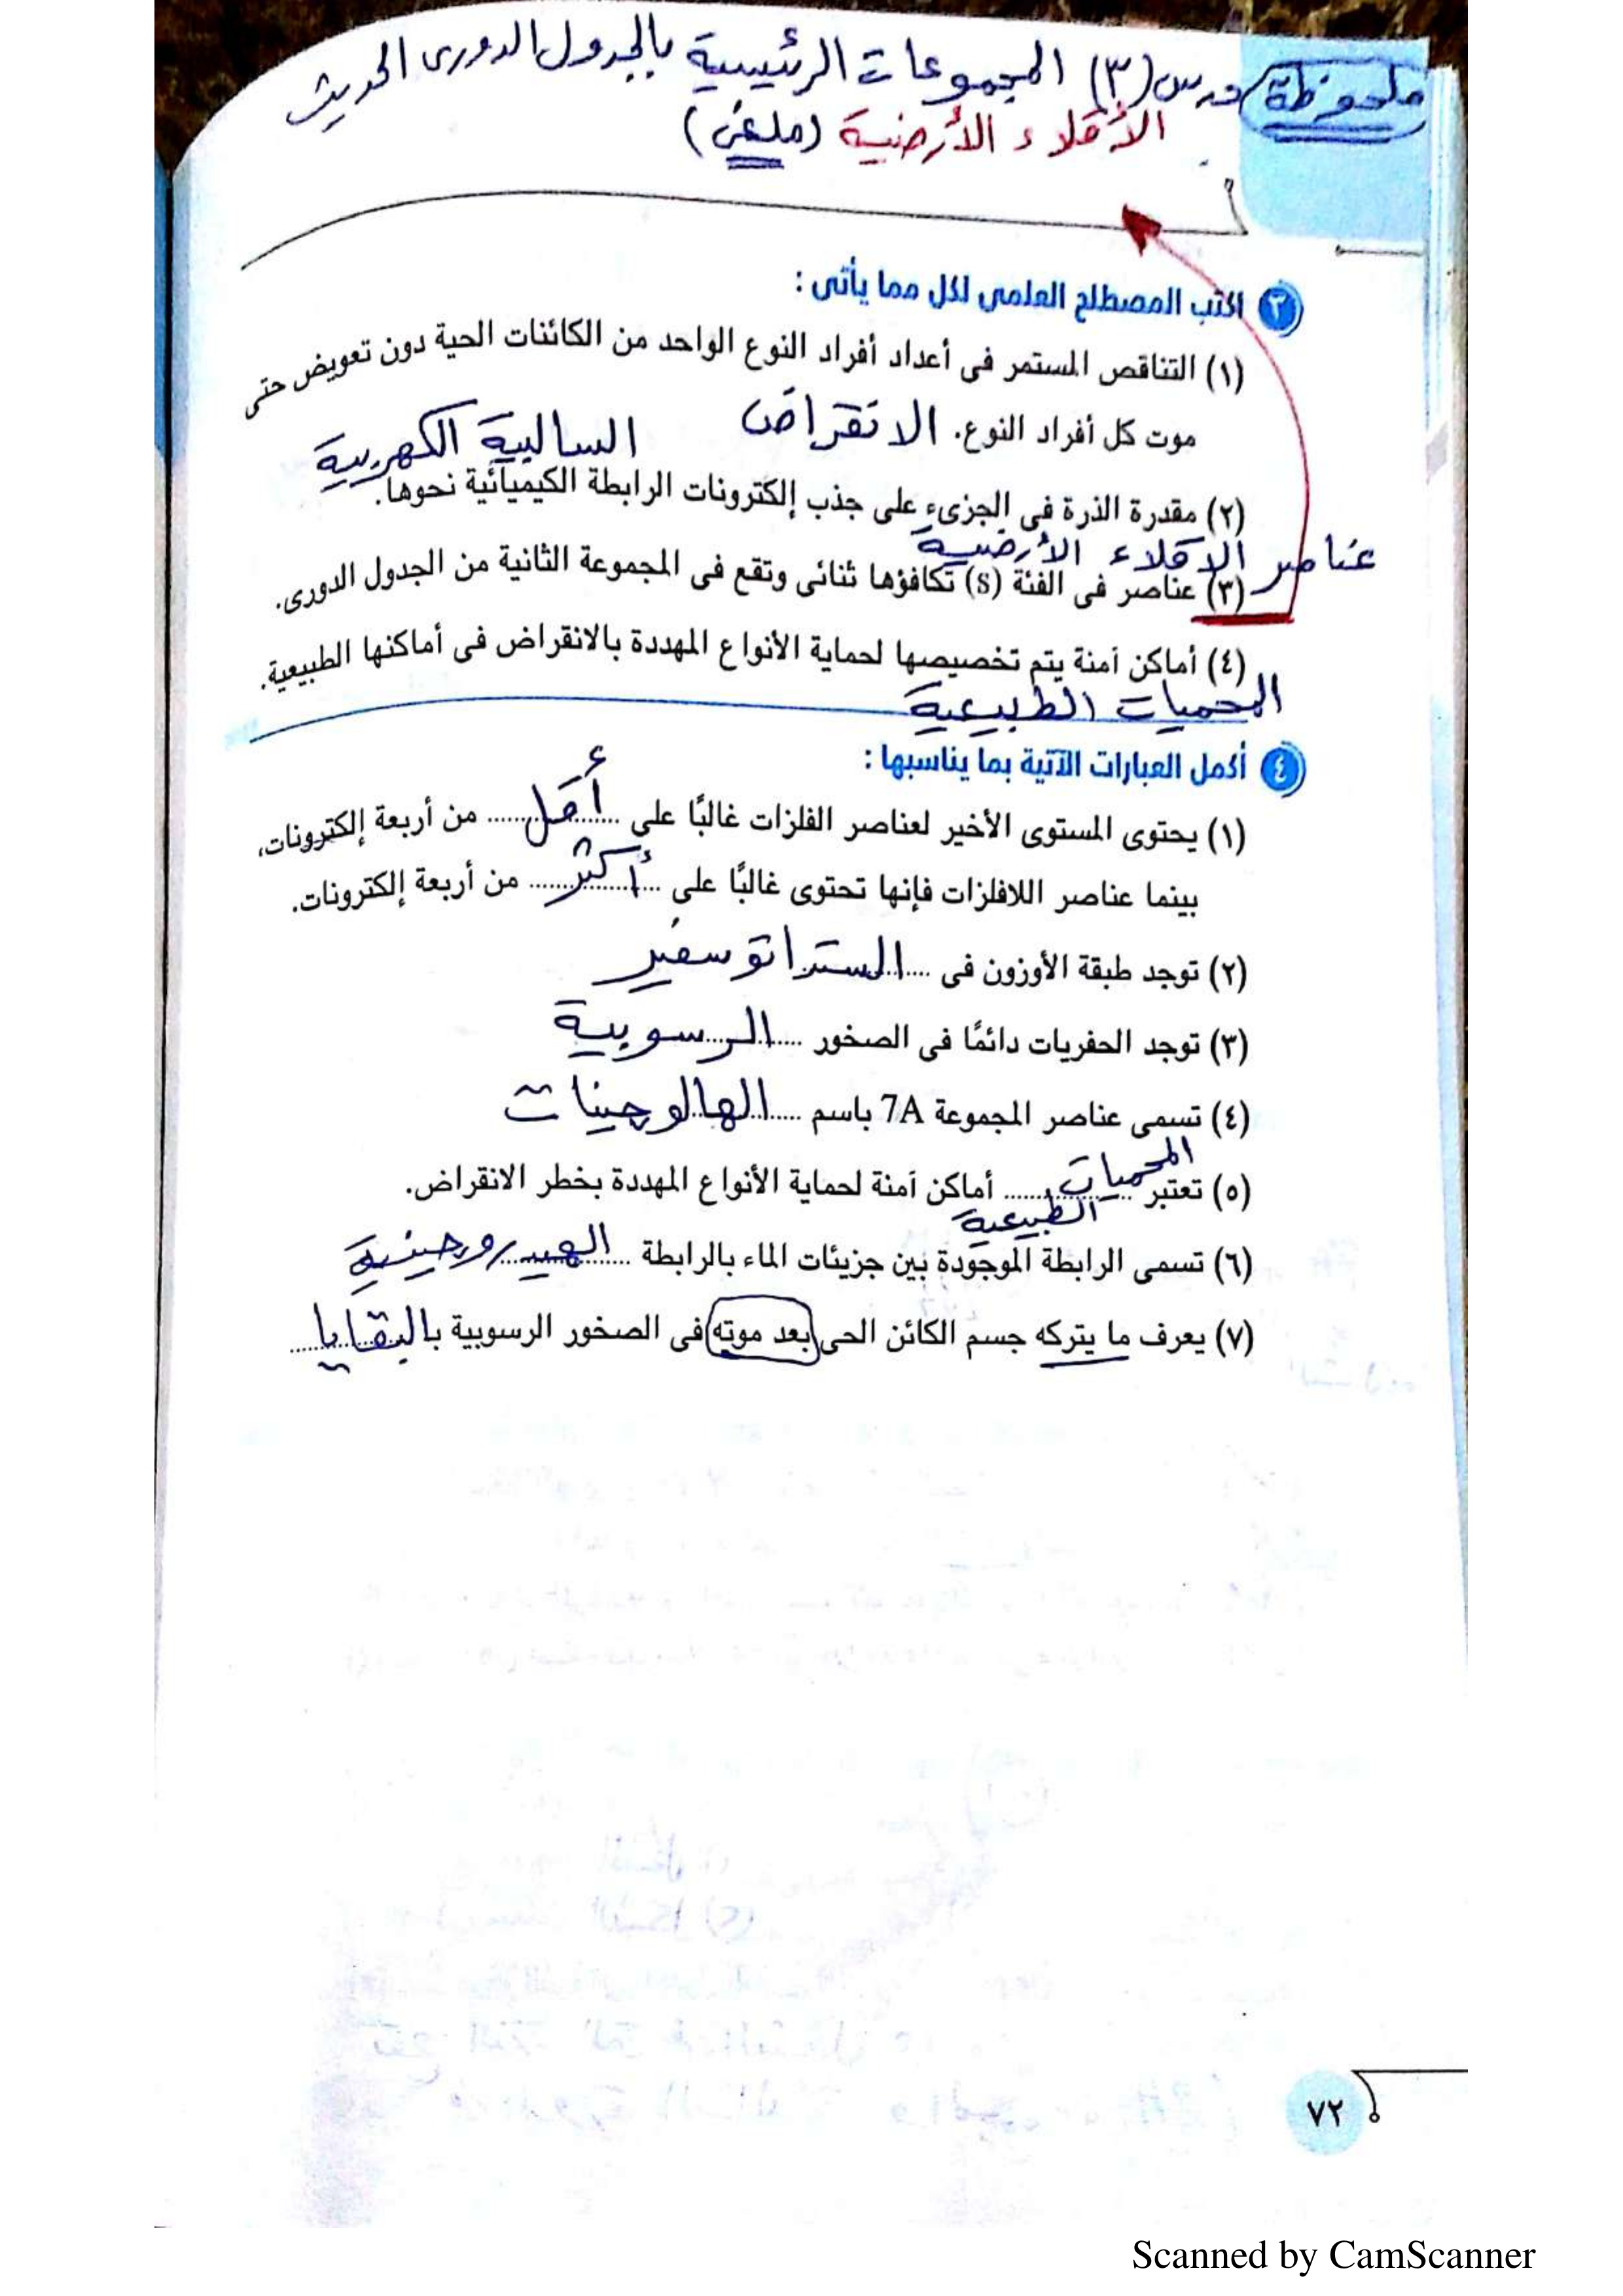 ملحوظة درس (٣) المجموعات الرئيسية بالجدول الدورى الحديث
الأقلاء الأرضية (ملغى)
٣ اكتب المصطلح العلمى لكل مما يأتى :
(١) التناقص المستمر فى أعداد أفراد النوع الواحد من الكائنات الحية دون تعويض حتى
موت كل أفراد النوع. الانقراض
السالبية الكهربية
(٢) مقدرة الذرة فى الجزىء على جذب إلكترونات الرابطة الكيميائية نحوها.
عناصر الاقلاء الأرضية
(٣) عناصر فى الفئة (s) تكافؤها ثنائى وتقع فى المجموعة الثانية من الجدول الدورى.
(٤) أماكن آمنة يتم تخصيصها لحماية الأنواع المهددة بالانقراض فى أماكنها الطبيعية.
المحميات الطبيعية
٤ أكمل العبارات الآتية بما يناسبها :
(١) يحتوى المستوى الأخير لعناصر الفلزات غالبًا على أقل من أربعة إلكترونات،
بينما عناصر اللافلزات فإنها تحتوى غالبًا على أكثر من أربعة إلكترونات.
(٢) توجد طبقة الأوزون فى الستراتوسفير
(٣) توجد الحفريات دائمًا فى الصخور الرسوبية
(٤) تسمى عناصر المجموعة 7A باسم الهالوجينات
(٥) تعتبر المحميات الطبيعية أماكن آمنة لحماية الأنواع المهددة بخطر الانقراض.
(٦) تسمى الرابطة الموجودة بين جزيئات الماء بالرابطة الهيدروجينية
(٧) يعرف ما يتركه جسم الكائن الحى بعد موته فى الصخور الرسوبية بالبقايا
٧٢
Scanned by CamScanner